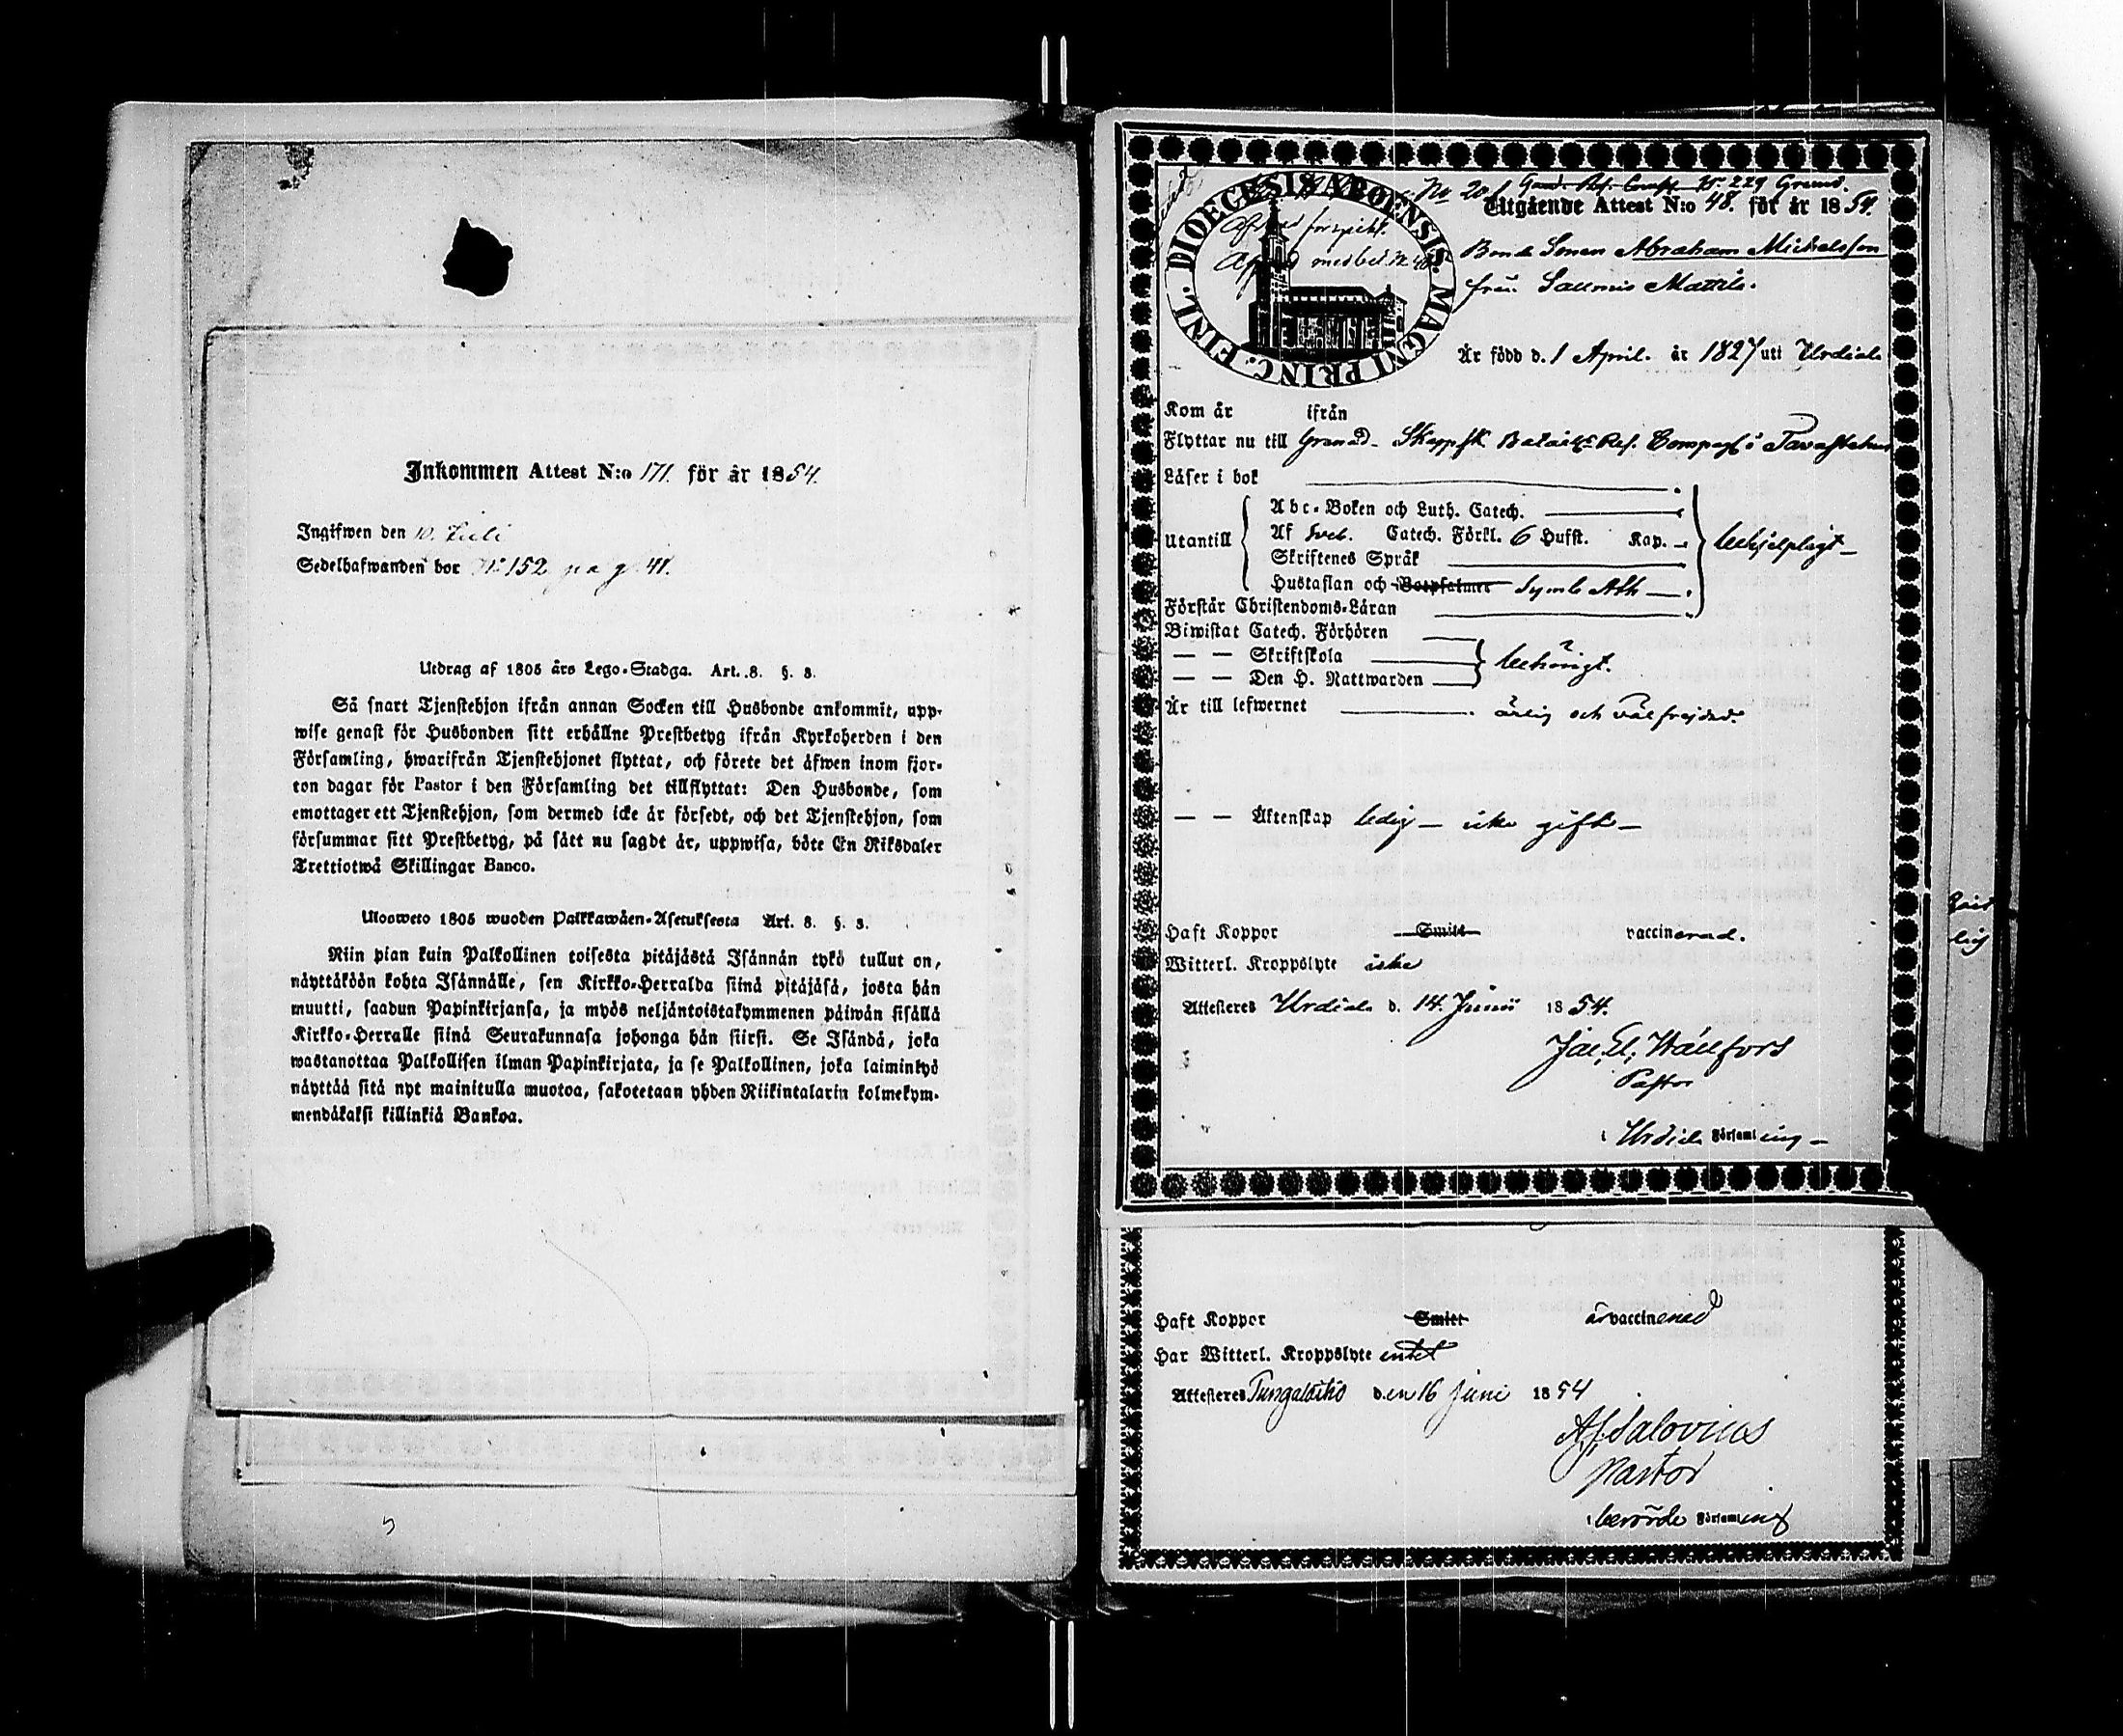 Inkommen Attest N:o 171. för år 1854.
Ingifwen den 10. Juli
Sedelhafwanden bor N:o 152 pag 41.
Utdrag af 1805 års Lego-Stadga. Art. 8. §. 3.
Så snart Tjenstehjon ifrån annan Socken till Husbonde ankommit, upp-
wise genast för Husbonden sitt erhållne Prestbetyg ifrån Kyrkoherden i den
Församling, hwarifrån Tjenstehjonet flyttat, och förete det äfwen inom fjor-
ton dagar för Pastor i den Församling det tillflyttat: Den Husbonde, som
emottager ett Tjenstehjon, som dermed icke är försedt, och det Tjenstehjon, som
försummar sitt Prestbetyg, på sätt nu sagdt är, uppwisa, böte En Riksdaler
Trettiotwå Skillingar Banco.
Ulosweto 1805 wuoden Palkkawäen-Asetuksesta Art. 8. §. 3.
Niin pian kuin Palkollinen toisesta pitäjästä Isännän tykö tullut on,
näyttäköön kohta Isännälle, sen Kirkko-Herralda siinä pitäjäsä, josta hän
muutti, saadun Papinkirjansa, ja myös neljäntoistakymmenen päiwän sisällä
Kirkko-Herralle siinä Seurakunnasa johonga hän siirsi. Se Isändä, joka
wastanottaa Palkollisen ilman Papinkirjata, ja se Palkollinen, joka laiminlyö
näyttää sitä nyt mainitulla muotoa, sakotetaan yhden Riikintalarin kolmekym-
mendäkaksi killinkiä Bankoa.
DIOECESIS ABOENSIS. MAGNI PRINC. FINL.
N:o 201 Gren. Res. Comp. N:o 229 Grenad.
Utgående Attest N:o 48. för år 1854.
Bonde Sonen Abraham Michelsson
från Saumis Mattila.
Är född d. 1 April. år 1827 uti Urdiala
Kom år ifrån
Flyttar nu till Grenad. Skarpsk. Bataill: Res. Compagt i Tavastehus
Läser i bok
Utantill
Abc-Boken och Luth. Catech.
Af Sveb. Catech. Förkl. 6 Hufst. Kap.
behjelpligt
Skriftenes Språk
Hustaflan och Botpsalmer Symb Ath
Förstår Christendoms-Läran
Biwistat Catech. Förhören
— — Skriftskola
behörigt.
— — Den H. Nattwarden
Är till lefwernet ärlig och välfrejdad.
— — Äktenskap ledig — icke gift —
Haft Koppor Smitt vaccinerad.
Witterl. Kroppslyte icke
Attesteres Urdiala d. 14. Junii 1854.
Pastor
i Urdiala Församling
Haft Koppor Smitt är vaccinerad
Har Witterl. Kroppslyte intet
Attesteres Pungalaitio den 16 juni 1854
Pastor
i berörde Församling